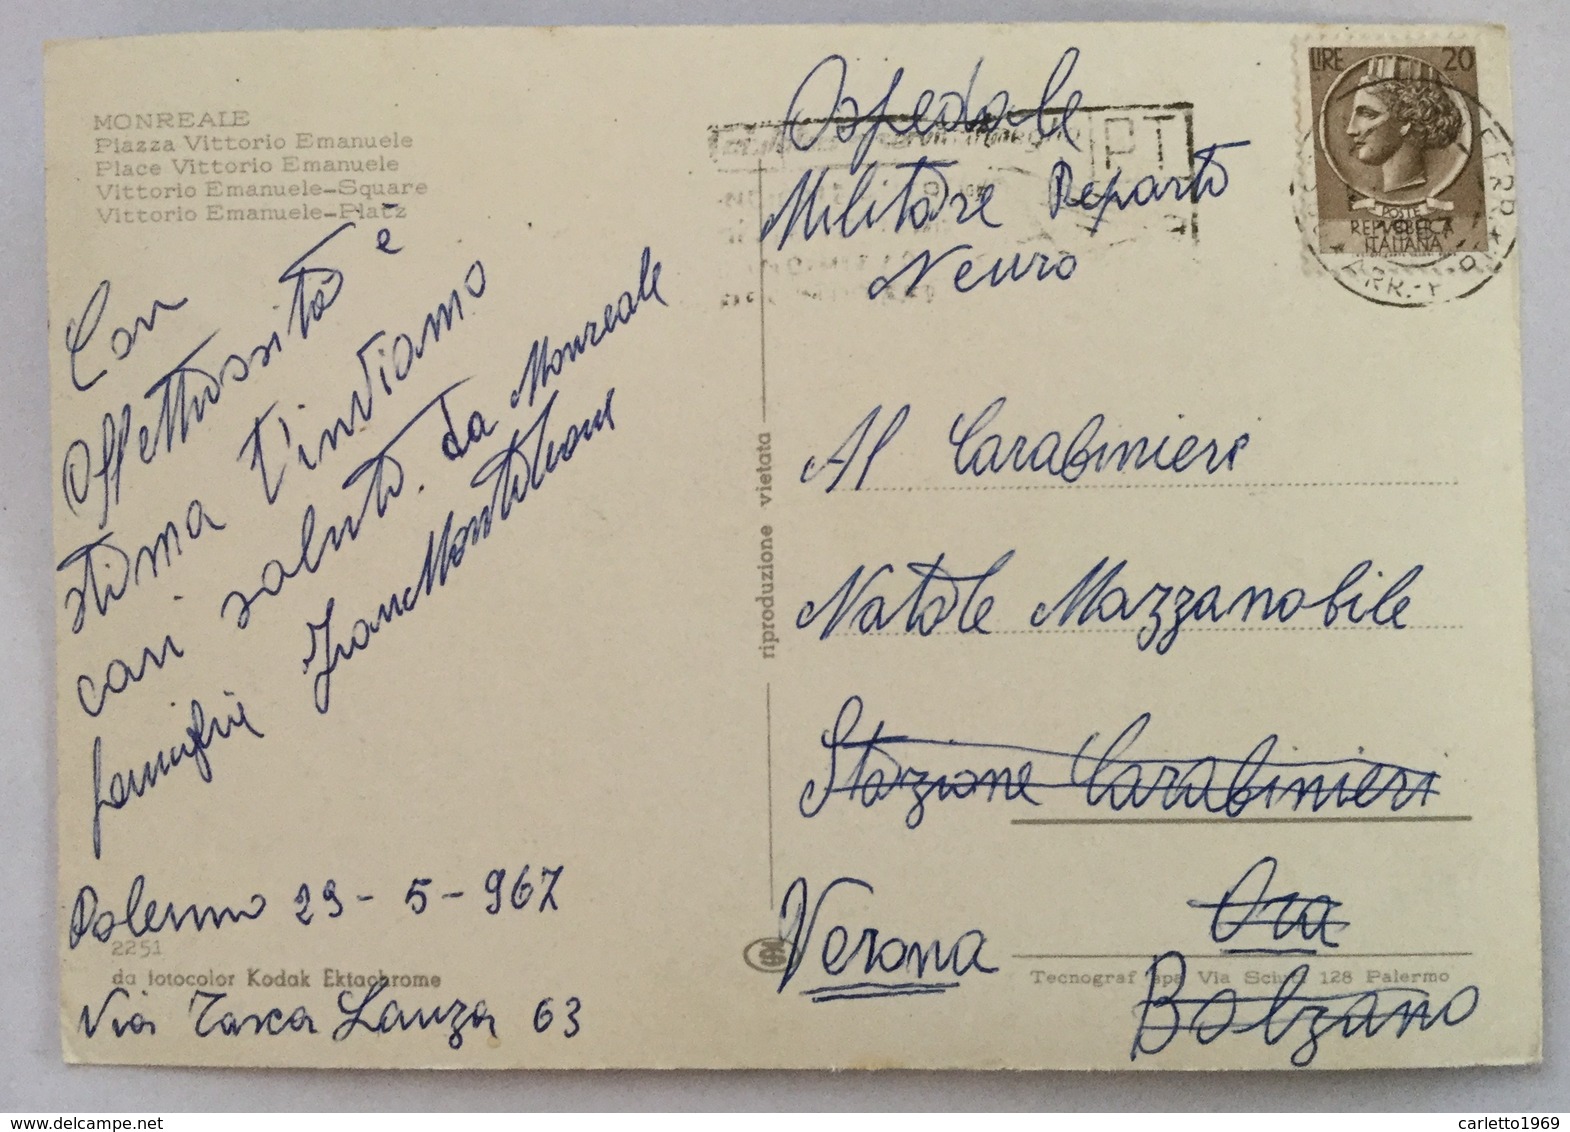 MONREALE
Piazza Vittorio Emanuele
Place Vittorio Emanuele
Vittorio Emanuele-Square
Vittorio Emanuele-Platz
Con
affettuosità e
stima t'inviamo
cari saluti. da Monreale
famiglia
Palermo 29-5-967
2251
da fotocolor Kodak Ektachrome
Via Tasca Lanza 63
riproduzione vietata
Ospedale
Militare Reparto
Neuro
Al Carabinieri
Natale Mazzanobile
Stazione Carabinieri
Ora
Verona
Bolzano
Tecnograf spa Via 128 Palermo
PT
LIRE 20
POSTE
REPVBBLICA
ITALIANA
carletto1969